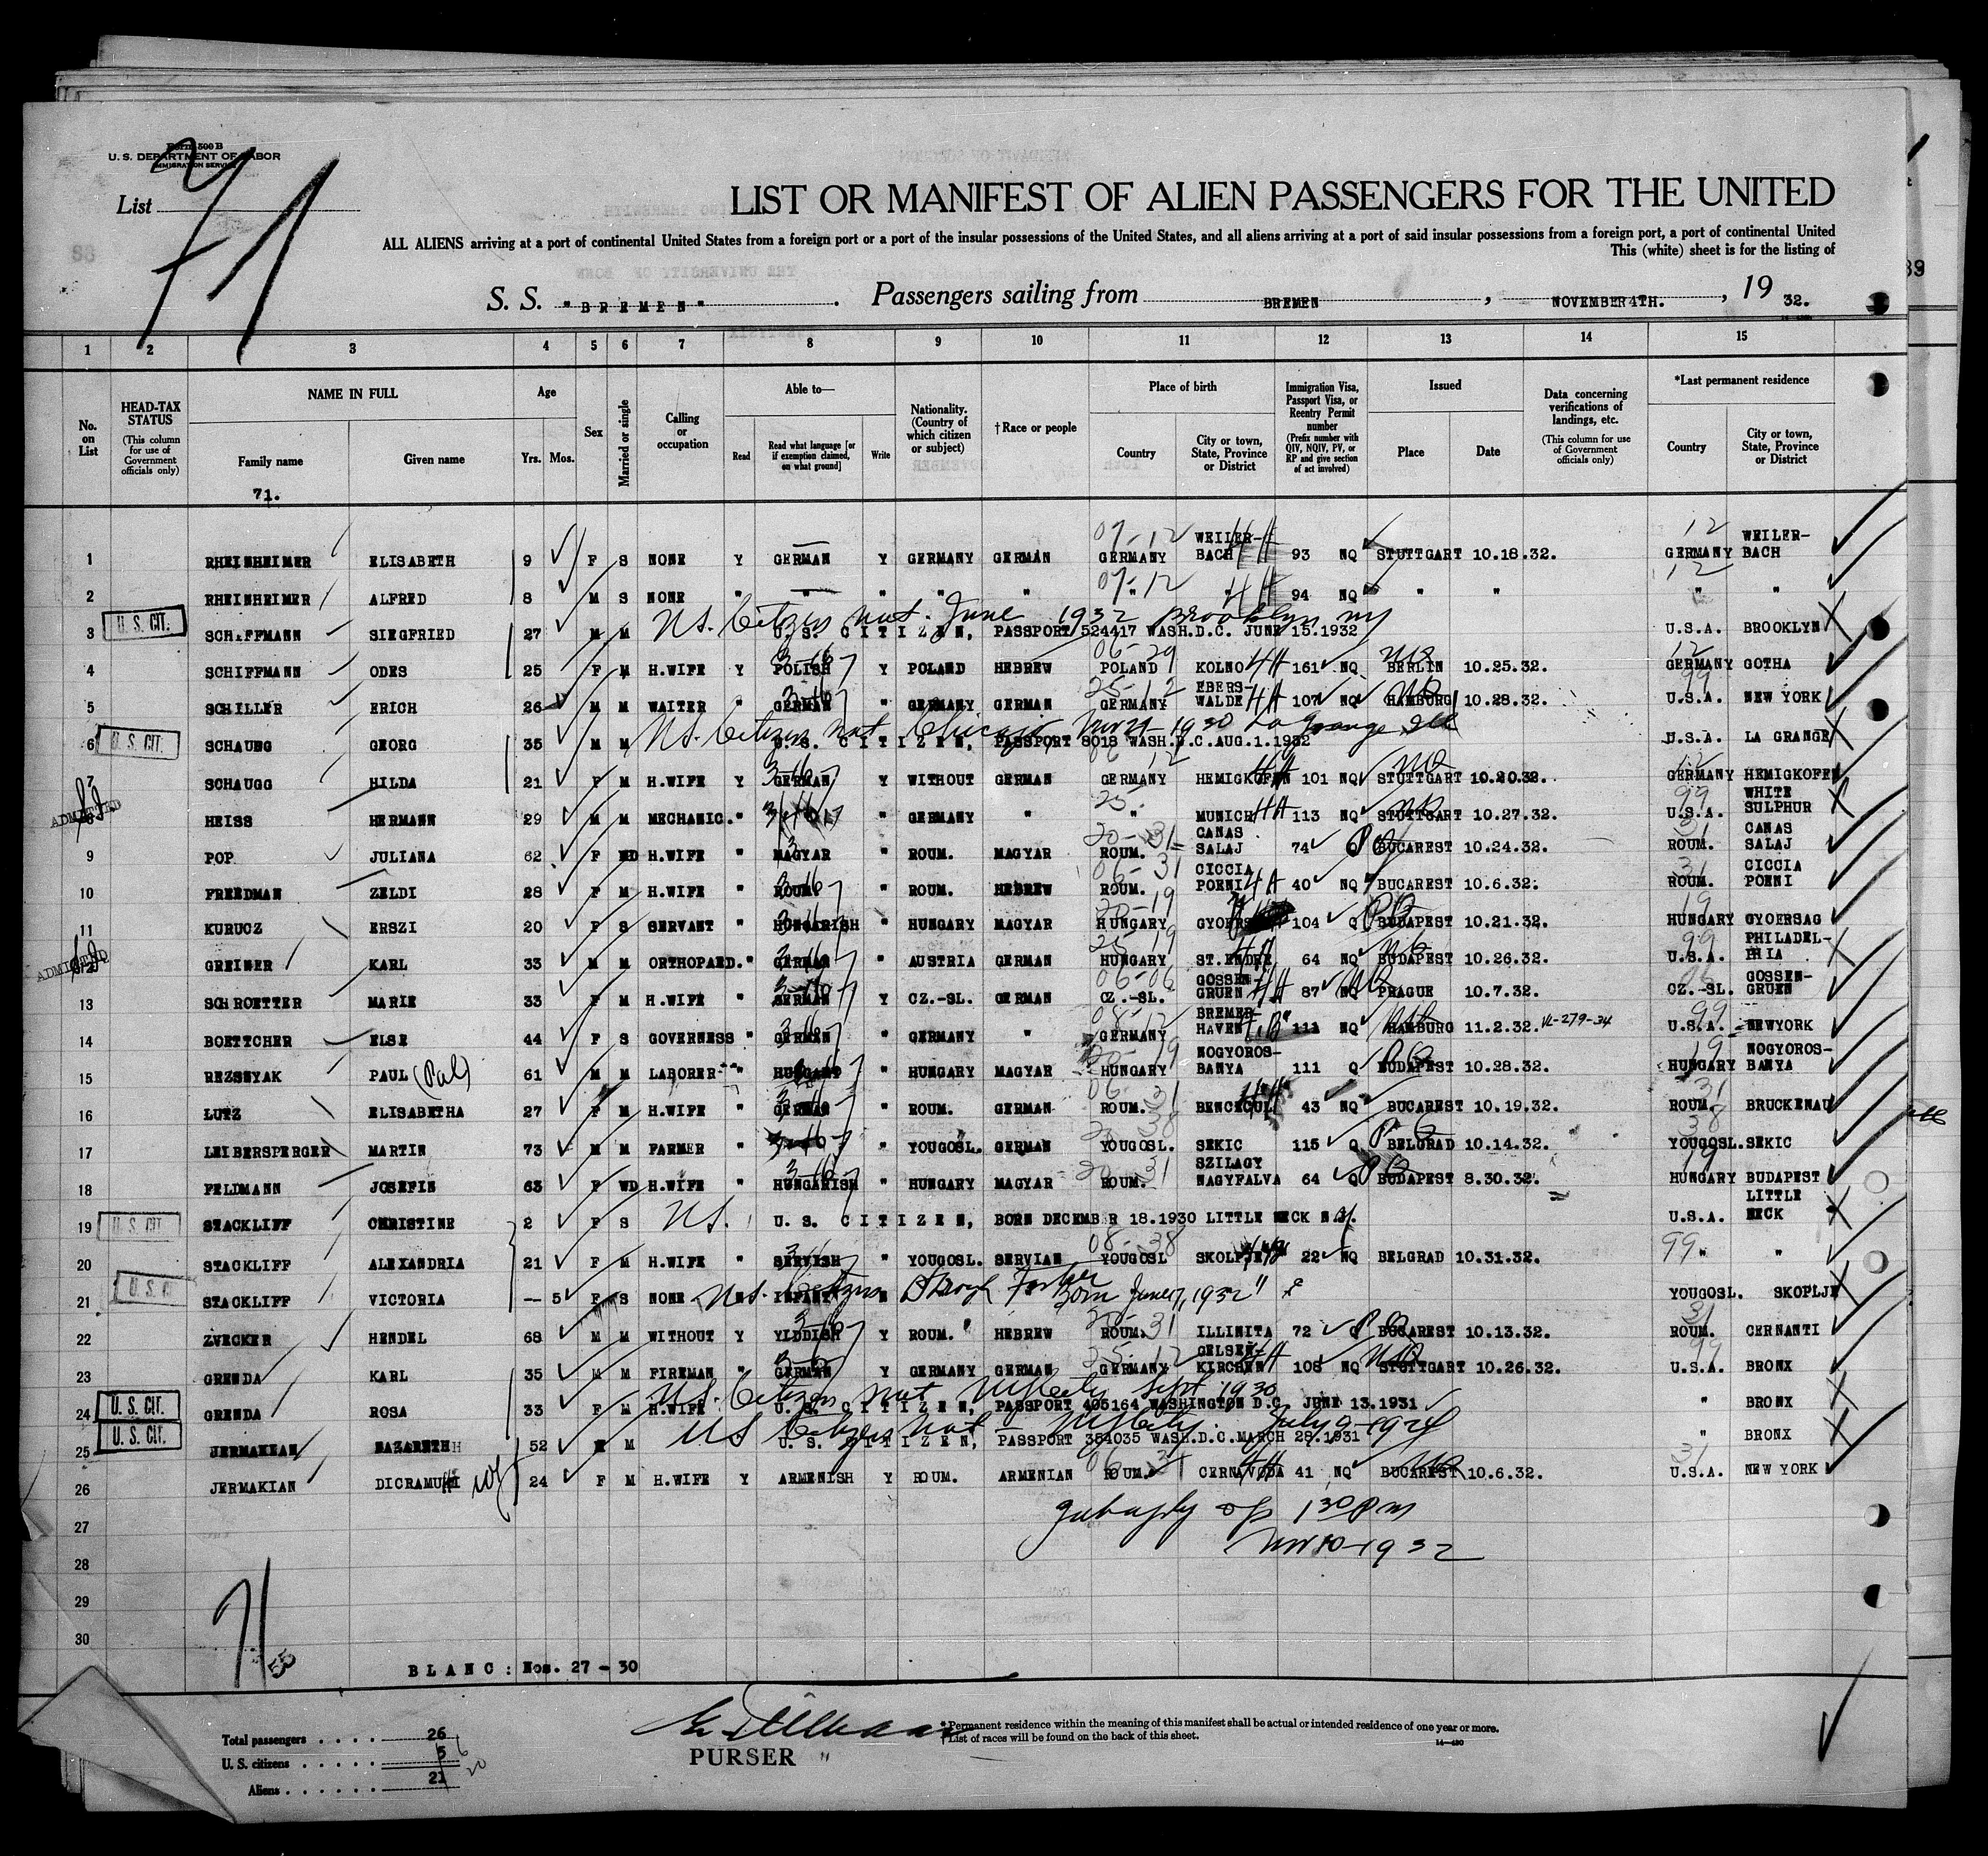 Form 500 B
U. S. DEPARTMENT OF LABOR
IMMIGRATION SERVICE
List 71
LIST OR MANIFEST OF ALIEN PASSENGERS FOR THE UNITED
ALL ALIENS arriving at a port of continental United States from a foreign port or a port of the insular possessions of the United States, and all aliens arriving at a port of said insular possessions from a foreign port, a port of continental United
This (white) sheet is for the listing of
S. S. "BREMEN". Passengers sailing from BREMEN, NOVEMBER 4TH., 19 32.
1 2 3 4 5 6 7 8 9 10 11 12 13 14 15
No. on List
HEAD-TAX STATUS (This column for use of Government officials only)
NAME IN FULL Family name Given name
Age Yrs. Mos.
Sex
Married or single
Calling or occupation
Able to— Read Read what language [or if exemption claimed, on what ground] Write
Nationality. (Country of which citizen or subject)
†Race or people
Place of birth Country City or town, State, Province or District
Immigration Visa, Passport Visa, or Reentry Permit number (Prefix number with QIV, NQIV, PV, or RP and give section of act involved)
Issued Place Date
Data concerning verifications of landings, etc. (This column for use of Government officials only)
*Last permanent residence Country City or town, State, Province or District
71.
1 RHEINHEIMER ELISABETH 9 F S NONE Y GERMAN Y GERMANY GERMAN GERMANY WEILER-BACH 93 NQ STUTTGART 10.18.32. GERMANY WEILER-BACH
2 RHEINHEIMER ALFRED 8 M S NONE " " " " " " " 94 NQ " " " "
U.S. Citizen nat. June 1932 Brooklyn NY
3 U. S. CIT. SCHIFFMANN SIEGFRIED 27 M M U.S. CITIZEN, PASSPORT 524417 WASH.D.C. JUNE 15.1932 U.S.A. BROOKLYN
4 SCHIFFMANN ODES 25 F M H.WIFE Y POLISH Y POLAND HEBREW POLAND KOLNO 161 NQ BERLIN 10.25.32. GERMANY GOTHA
5 SCHILLER ERICH 26 M M WAITER " GERMAN " GERMANY GERMAN GERMANY EBERS-WALDE 107 NQ HAMBURG 10.28.32. U.S.A. NEW YORK
U.S. Citizen nat Chicago Nov 21-1930 La Grange Ill
6 U. S. CIT. SCHAUGG GEORG 35 M M U.S. CITIZEN, PASSPORT 8018 WASH.D.C.AUG.1.1932 U.S.A. LA GRANGE
7 SCHAUGG HILDA 21 F M H.WIFE Y GERMAN Y WITHOUT GERMAN GERMANY HEMIGKOFEN 101 NQ STUTTGART 10.20.32. GERMANY HEMIGKOFEN
ADMITTED
8 HEISS HERMANN 29 M M MECHANIC. " " GERMANY " " MUNICH 113 NQ STUTTGART 10.27.32. U.S.A. WHITE SULPHUR
9 POP JULIANA 62 F WD H.WIFE " MAGYAR " ROUM. MAGYAR ROUM. CANAS SALAJ 74 Q BUCAREST 10.24.32. ROUM. CANAS SALAJ
10 FREEDMAN ZELDI 28 F M H.WIFE " ROUM. " ROUM. HEBREW ROUM. CICCIA POENI 40 NQ BUCAREST 10.6.32. ROUM. CICCIA POENI
11 KURUCZ ERSZI 20 F S SERVANT " HUNGARISH " HUNGARY MAGYAR HUNGARY 104 Q BUDAPEST 10.21.32. HUNGARY GYOERSAG
ADMITTED
12 GREINER KARL 33 M M ORTHOPAED. " GERMAN " AUSTRIA GERMAN HUNGARY ST.ENDRE 64 NQ BUDAPEST 10.26.32. U.S.A. PHILADEL-PHIA
13 SCHROETTER MARIE 33 F M H.WIFE " GERMAN Y CZ.-SL. GERMAN CZ.-SL. GOSSEN-GRUEN 87 NQ PRAGUE 10.7.32. CZ.-SL. GOSSEN-GRUEN
14 BOETTCHER ELSE 44 F S GOVERNESS " GERMAN " GERMANY " GERMANY BREMER-HAVEN 111 NQ HAMBURG 11.2.32. U.S.A. NEWYORK
15 REZSNYAK PAUL (Pal) 61 M M LABORER " " HUNGARY MAGYAR HUNGARY NOGYOROS-BANYA 111 Q BUDAPEST 10.28.32. HUNGARY NOGYOROS-BANYA
16 LUTZ ELISABETHA 27 F M H.WIFE " GERMAN " ROUM. GERMAN ROUM. 43 NQ BUCAREST 10.19.32. ROUM. BRUCKENAU
17 LEIBERSPERGER MARTIN 73 M M FARMER " " YOUGOSL. GERMAN YOUGOSL. SEKIC 115 Q BELGRAD 10.14.32. YOUGOSL. SEKIC
18 FELDMANN JOSEFIN 63 F WD H.WIFE " HUNGARISH " HUNGARY MAGYAR ROUM. SZILAGY NAGYFALVA 64 Q BUDAPEST 8.30.32. HUNGARY BUDAPEST
19 U. S. CIT. STACKLIFF CHRISTINE 2 F S U.S. U. S. CITIZEN, BORN DECEMBER 18.1930 LITTLE NECK N.Y. U.S.A. LITTLE NECK
20 STACKLIFF ALEXANDRIA 21 F M H.WIFE " SERVISH " YOUGOSL. SERVIAN YOUGOSL SKOLPJE 22 NQ BELGRAD 10.31.32. " "
21 U. S. C STACKLIFF VICTORIA — 5 F S NONE INFANT U.S. Citizen through Father Born June 7, 1932 YOUGOSL. SKOPLJE
22 ZVECKER HENDEL 68 M M WITHOUT Y YIDDISH Y ROUM. HEBREW ROUM. ILLINITA 72 Q BUCAREST 10.13.32. ROUM. CERNANTI
23 GRENDA KARL 35 M M FIREMAN " GERMAN Y GERMANY GERMAN GERMANY GELSEN-KIRCHEN 105 NQ STUTTGART 10.26.32. U.S.A. BRONX
U.S. Citizen nat NY City Sept 1930
24 U. S. CIT. GRENDA ROSA 33 F M H.WIFE U.S. CITIZEN, PASSPORT 405164 WASHINGTON D.C. JUNE 13.1931 " BRONX
US Citizen nat NY City. July 9-1924
25 U. S. CIT. JERMAKEAN NAZARETH 52 M U.S. CITIZEN, PASSPORT 354035 WASH.D.C.MARCH 28.1931 " BRONX
26 JERMAKIAN DICRAMUHI 24 F M H.WIFE Y ARMENISH Y ROUM. ARMENIAN ROUM. CERNAVODA 41 NQ BUCAREST 10.6.32. U.S.A. NEW YORK
130 pm
27
Nov 10-1932
28
29
30
71
55
BLANC: Nos. 27 - 30
Total passengers .... 26
U. S. citizens ..... 5 6
Aliens ...... 21 20
PURSER
*Permanent residence within the meaning of this manifest shall be actual or intended residence of one year or more.
†List of races will be found on the back of this sheet.
14—430